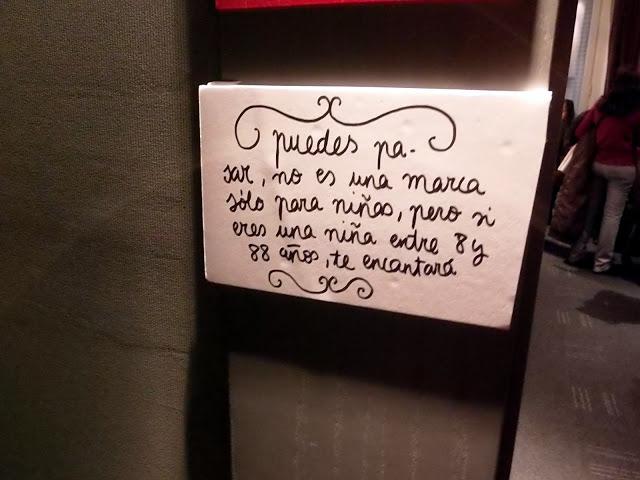 puedes pa-
sar, no es una marca
sólo para niñas, pero si
eres una niña entre 8 y
88 años, te encantará